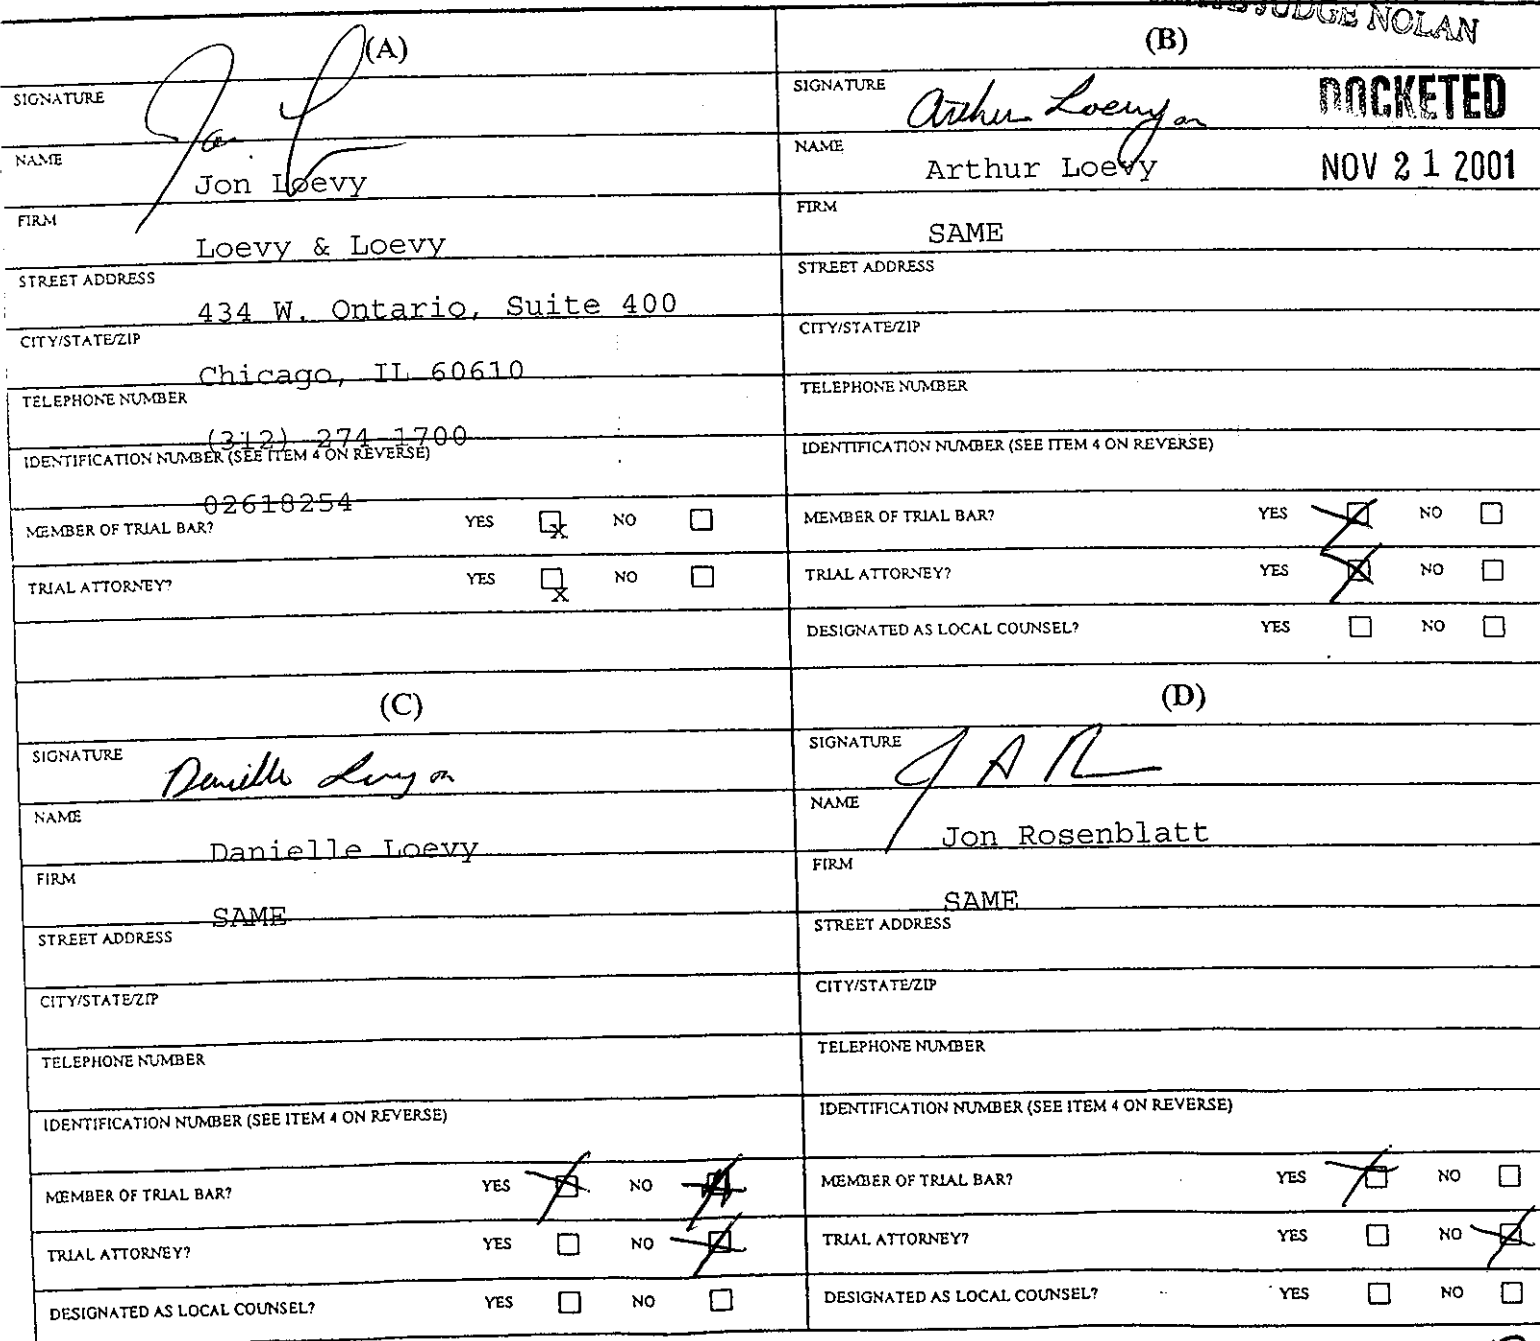 JUDGE NOLAN
(A)
SIGNATURE
Jon L
NAME
Jon Loevy
FIRM
Loevy & Loevy
STREET ADDRESS
434 W. Ontario, Suite 400
CITY/STATE/ZIP
Chicago, IL 60610
TELEPHONE NUMBER
(312) 274-1700
IDENTIFICATION NUMBER (SEE ITEM 4 ON REVERSE)
02618254
MEMBER OF TRIAL BAR? YES x NO
TRIAL ATTORNEY? YES x NO
(B)
SIGNATURE
Arthur Loevy
DOCKETED
NAME
Arthur Loevy
NOV 21 2001
FIRM
SAME
STREET ADDRESS
CITY/STATE/ZIP
TELEPHONE NUMBER
IDENTIFICATION NUMBER (SEE ITEM 4 ON REVERSE)
MEMBER OF TRIAL BAR? YES NO
TRIAL ATTORNEY? YES NO
DESIGNATED AS LOCAL COUNSEL? YES NO
(C)
SIGNATURE
Danielle Loevy
NAME
Danielle Loevy
FIRM
SAME
STREET ADDRESS
CITY/STATE/ZIP
TELEPHONE NUMBER
IDENTIFICATION NUMBER (SEE ITEM 4 ON REVERSE)
MEMBER OF TRIAL BAR? YES NO
TRIAL ATTORNEY? YES NO
DESIGNATED AS LOCAL COUNSEL? YES NO
(D)
SIGNATURE
J A R
NAME
Jon Rosenblatt
FIRM
SAME
STREET ADDRESS
CITY/STATE/ZIP
TELEPHONE NUMBER
IDENTIFICATION NUMBER (SEE ITEM 4 ON REVERSE)
MEMBER OF TRIAL BAR? YES NO
TRIAL ATTORNEY? YES NO
DESIGNATED AS LOCAL COUNSEL? YES NO